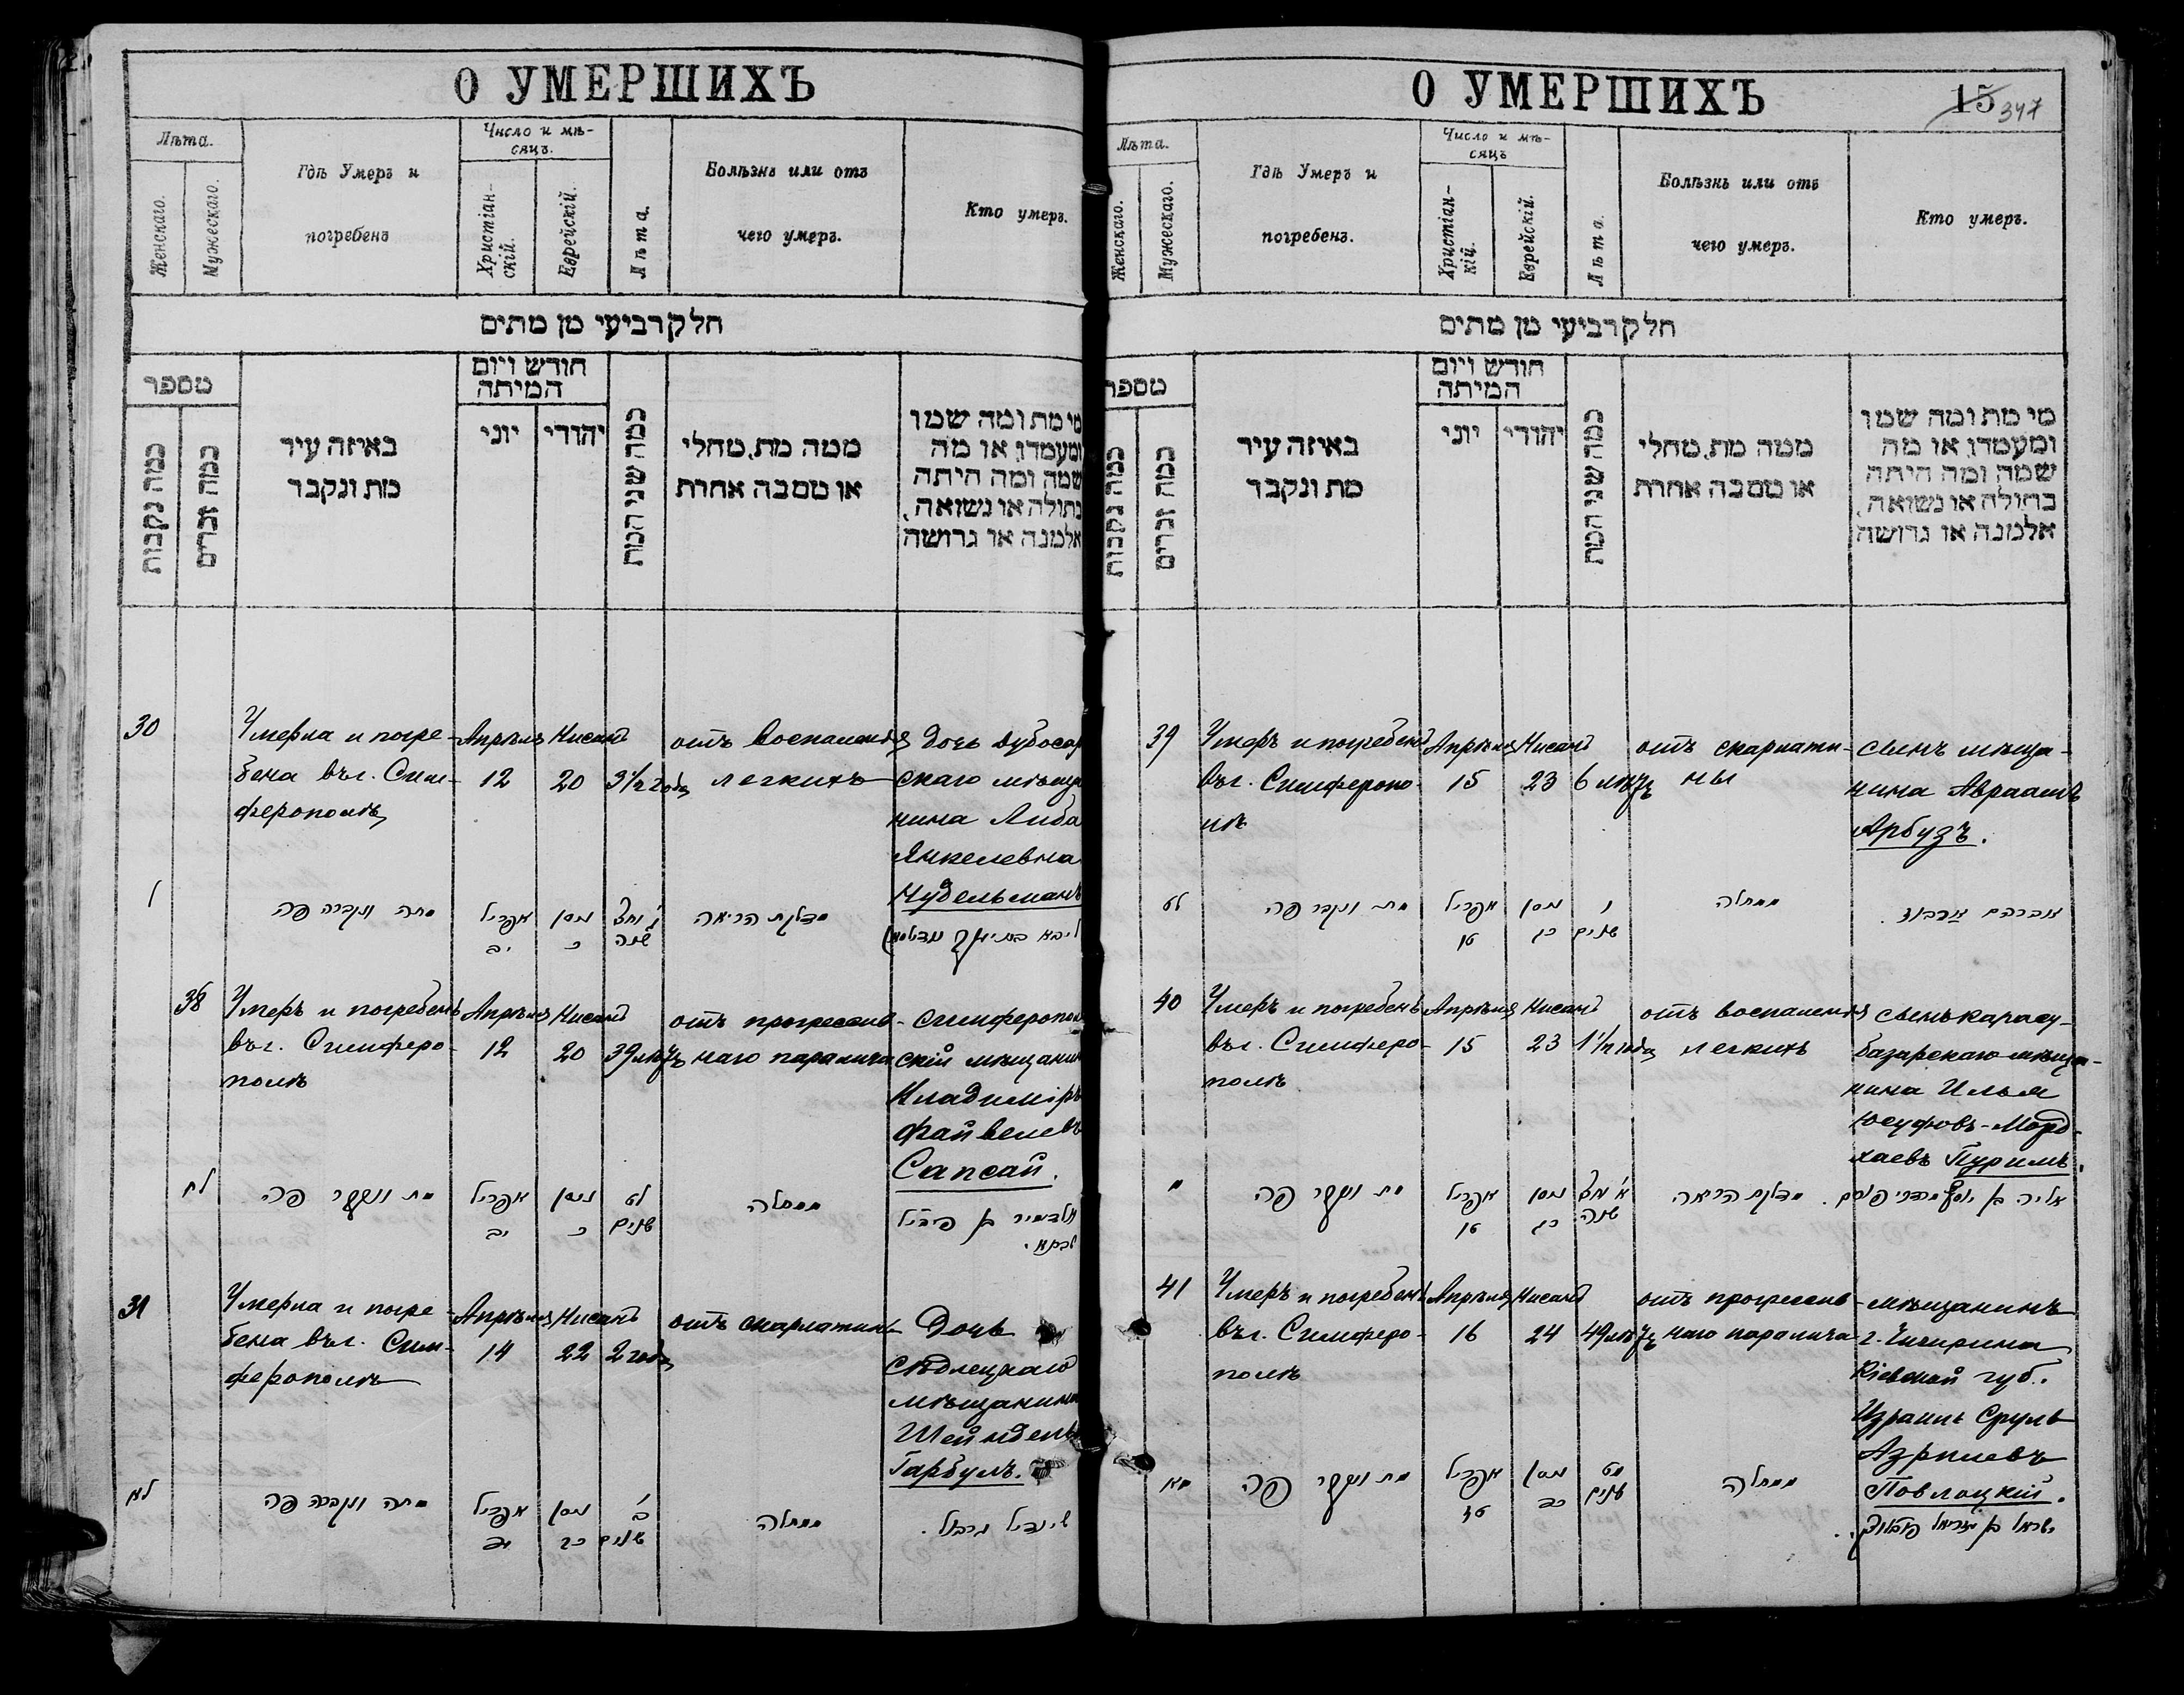 О УМЕРШИХЪ
Лѣта.
Женскаго.
Мужескаго.
Гдѣ Умеръ и
погребенъ
Число и мѣ-
сяцъ.
Христіан-
скій.
Еврейскій.
Лѣта.
Болѣзнь или отъ
чего умеръ.
Кто умеръ.
חלק רביעי מן מתים
מספר
כמה נקבות
כמה זכרים
באיזה עיר
מת ונקבר
חודש ויום
המיתה
יוני
יהודי
כמה שני המת
ממה מת, מחלי
או מסבה אחרת
מי מת ומה שמו
ומעמדו, או מה
שמה ומה היתה
בתולה או נשואה,
אלמנה או גרושה
30
Умерла и погре-
бена въ г. Сим-
ферополѣ
Апрѣля
12
Нисанъ
20
3 1/2 года
отъ воспаленія
легкихъ
Дочь дубосар
скаго мѣща
нина Либа
Янкелевна
Нудельманъ
ל
מתה ונקברה פה
אפריל
יב
ניסן
כ
ג׳ וחצי
שנה
מדלקת הריאה
ליבא בת יעקב נודילמאן
38
Умеръ и погребенъ
въ г. Симферо-
полѣ
Апрѣля
12
Нисанъ
20
39 лѣтъ
отъ прогрессив-
наго паралича
симферополь
скій мѣщанинъ
Владиміръ
Файвелевъ
Сапсай.
לח
מת ונקבר פה
אפריל
יב
ניסן
כ
לט
שנים
ממחלה
31
Умерла и погре-
бена въ г. Сим-
ферополѣ
Апрѣля
14
Нисанъ
22
2 года
отъ скарлатины
Дочь
сѣдлецкаго
мѣщанина
Шейндель
Гарбуль.
לא
מתה ונקברה פה
אפריל
ניסן
ב
שנים
ממחלה
שיינדיל גרבול.
О УМЕРШИХЪ
15 347
Лѣта.
Женскаго.
Мужескаго.
Гдѣ Умеръ и
погребенъ.
Число и мѣ-
сяцъ
Христіан-
кій.
Еврейскій.
Лѣта.
Болѣзнь или отъ
чего умеръ.
Кто умеръ.
חלק רביעי מן מתים
מספר
כמה נקבות
כמה זכרים
באיזה עיר
מת ונקבר
חודש ויום
המיתה
יוני
יהודי
כמה שני המת
ממה מת, מחלי
או מסבה אחרת
מי מת ומה שמו
ומעמדו, או מה
שמה ומה היתה
בתולה או נשואה,
אלמנה או גרושה
39
Умеръ и погребенъ
въ г. Симферопо-
лѣ
Апрѣля
15
Нисанъ
23
6 лѣтъ
отъ скарлати-
ны
сынъ мѣща-
нина Авраамъ
Арбузъ.
לט
מת ונקבר פה
אפריל
טו
ניסן
כג
ו
שנים
ממחלה
אברהם ארבוז.
40
Умеръ и погребенъ
въ г. Симферо-
полѣ
Апрѣля
15
Нисанъ
23
1 1/2 года
отъ воспаленія
легкихъ
сынъ карасу-
базарскаго мѣща-
нина Илья
Юсуфовъ-Морд-
хаевъ Пуримъ.
מ
מת ונקבר פה
אפריל
טו
ניסן
כג
א׳ וחצי
שנה
מדלקת הריאה.
אליה בן יוסף מרדכי פורים
41
Умеръ и погребенъ
въ г. Симферо-
полѣ
Апрѣля
16
Нисанъ
24
49 лѣтъ
отъ прогрессив-
наго паралича
мѣщанинъ
г. Чигирина
Кіевской губ.
Израиль Сруль
Азриевъ
Поволоцкій.
מא
מת ונקבר פה
אפריל
טז
ניסן
כד
מט
שנים
ממחלה